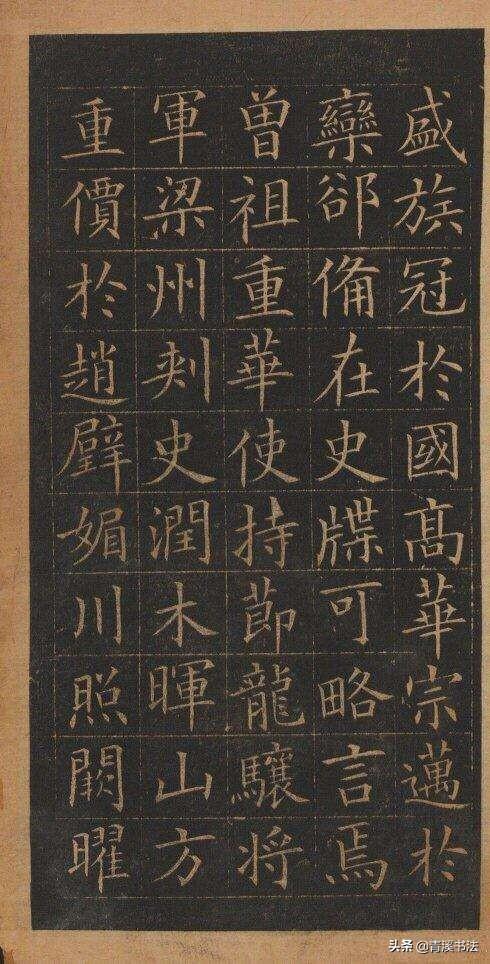 盛族冠於國髙華宗邁於
欒郤俻在史牒可略言焉
曽祖重華使持節龍驤将
軍梁州刾史潤木暉山方
重價於趙璧媚川照闕曜
头条 @青溪书法